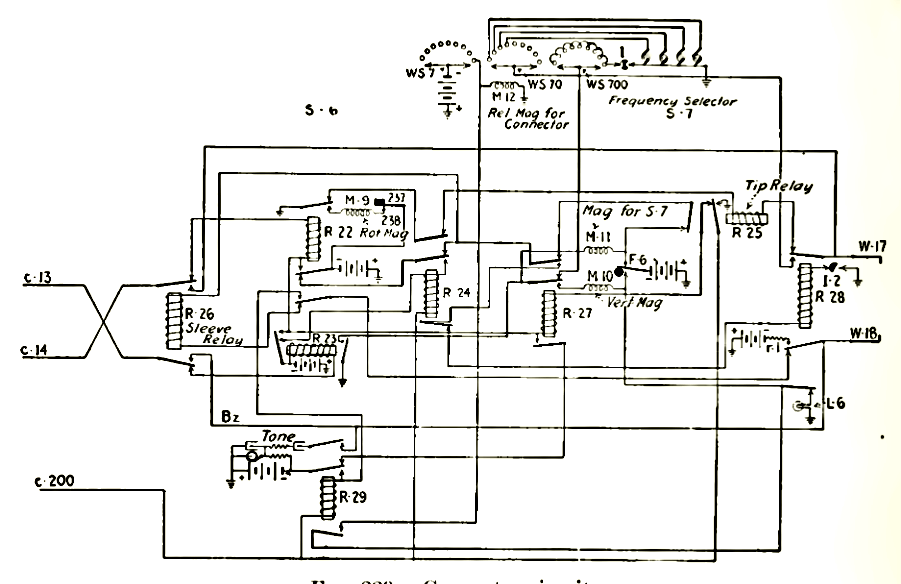 WS 7
+ -
+
WS 70
WS 700
M·12
Rel Mag for
Connector
Frequency Selector
S·7
S·6
Tip Relay
M·9
237
238
R 22
Rot Mag
Mag for S·7
R 25
W·17
M·11
F·6
M·10
Vert Mag
I·2
R 28
C·13
R·26
Sleeve
Relay
R 24
R·27
C·14
R·23
r·1
W·18
L·6
Bz
Tone
C·200
R·29